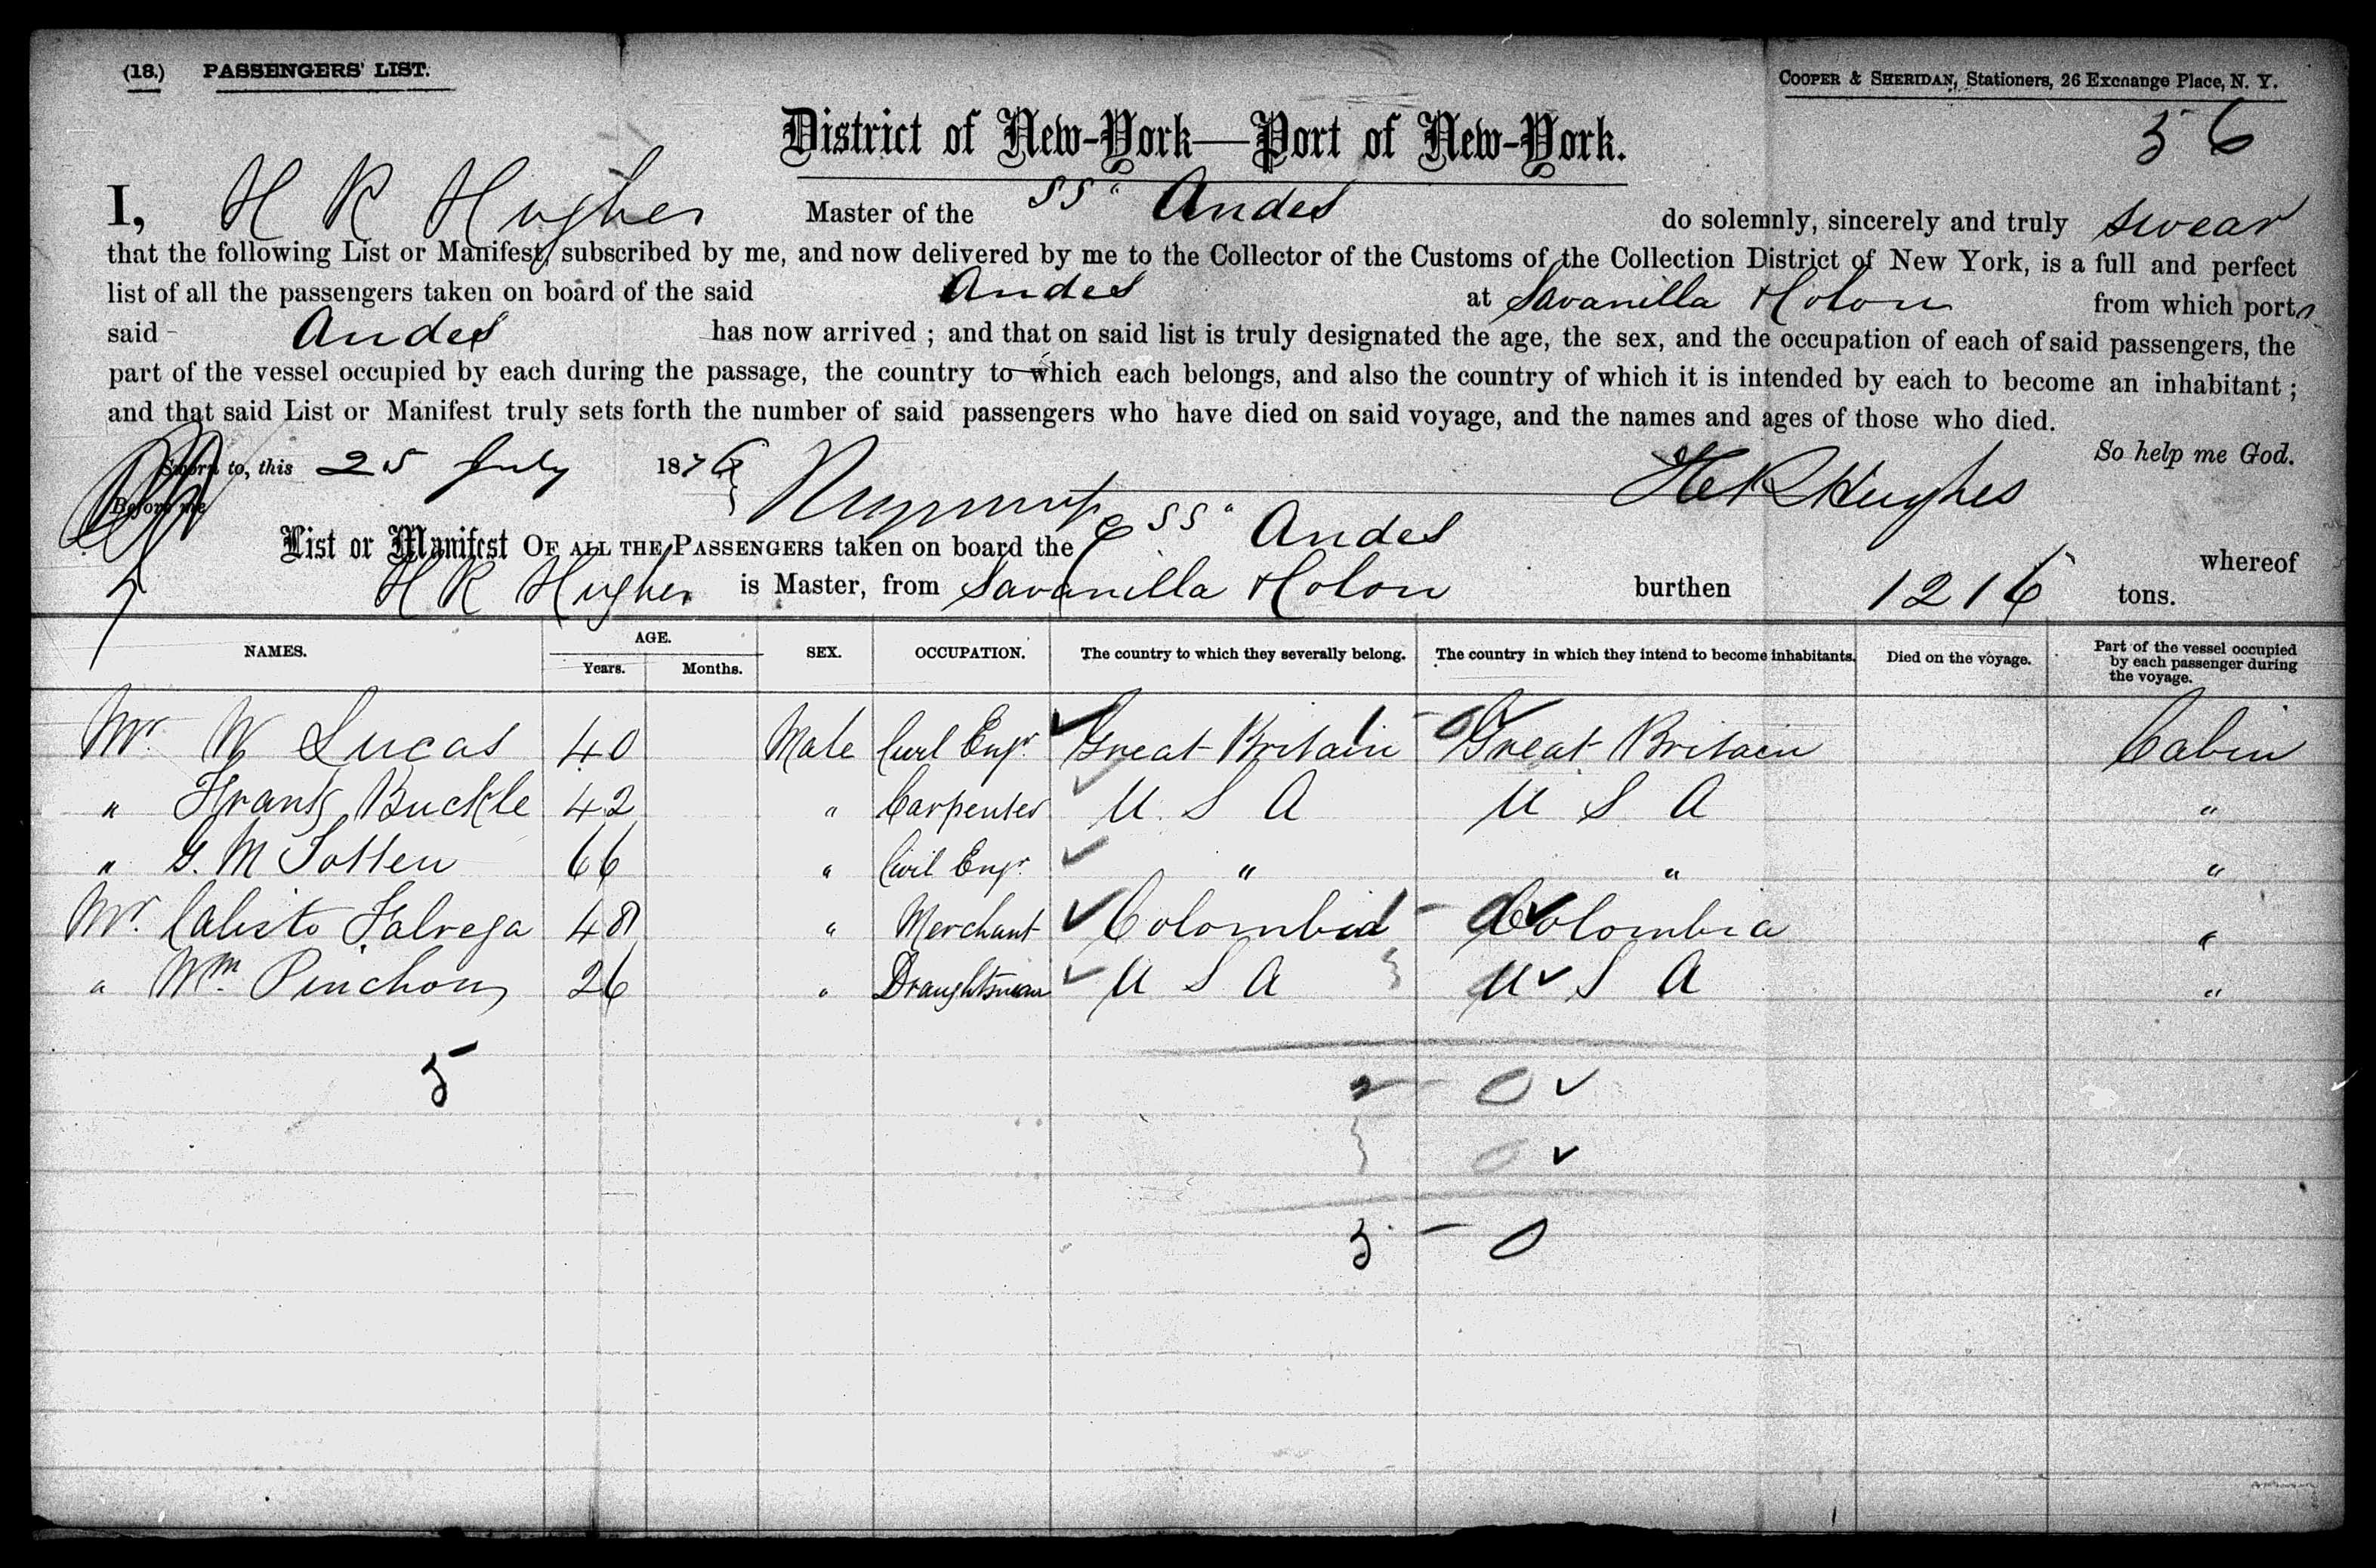 (18.) PASSENGERS' LIST.
COOPER & SHERIDAN, Stationers, 26 Exchange Place, N. Y.
56
District of New-York—Port of New-York.
I, H R Hughes Master of the SS" Andes do solemnly, sincerely and truly swear
that the following List or Manifest, subscribed by me, and now delivered by me to the Collector of the Customs of the Collection District of New York, is a full and perfect
list of all the passengers taken on board of the said Andes at Savanilla & Colon from which ports
said Andes has now arrived ; and that on said list is truly designated the age, the sex, and the occupation of each of said passengers, the
part of the vessel occupied by each during the passage, the country to which each belongs, and also the country of which it is intended by each to become an inhabitant ;
and that said List or Manifest truly sets forth the number of said passengers who have died on said voyage, and the names and ages of those who died.
So help me God.
Sworn to, this 25 July 1876
H R Hughes
Before me
List or Manifest OF ALL THE PASSENGERS taken on board the SS" Andes whereof
H R Hughes is Master, from Savanilla & Colon burthen 1216 tons.
NAMES. AGE. Years. Months. SEX. OCCUPATION. The country to which they severally belong. The country in which they intend to become inhabitants. Died on the voyage. Part of the vessel occupied by each passenger during the voyage.
Mr. W Lucas 40 Male Civil Engr. Great Britain Great Britain Cabin
" Frank Buckle 42 " Carpenter U S A U S A "
" G. M Totten 66 " Civil Engr. " " "
Mr. Calisto Falrega 48 " Merchant Colombia Colombia "
" Wm. Pinchon 26 " Draughtsman U S A U S A "
5
2 - 0
3 0
5 - 0